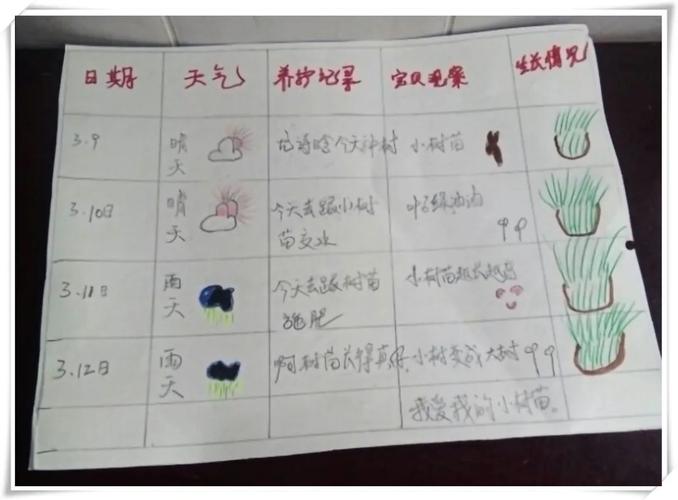 日期 天气 养护记录 宝贝观察 生长情况
3.9 晴天 今天种树 小树苗
3.10日 晴天 今天去跟小树苗交水 叶子绿油油
3.11日 雨天 今天去跟树苗施肥 小树苗越长越高
3.12日 雨天 啊树苗长得真 小树变成大树
我爱我的小树苗。